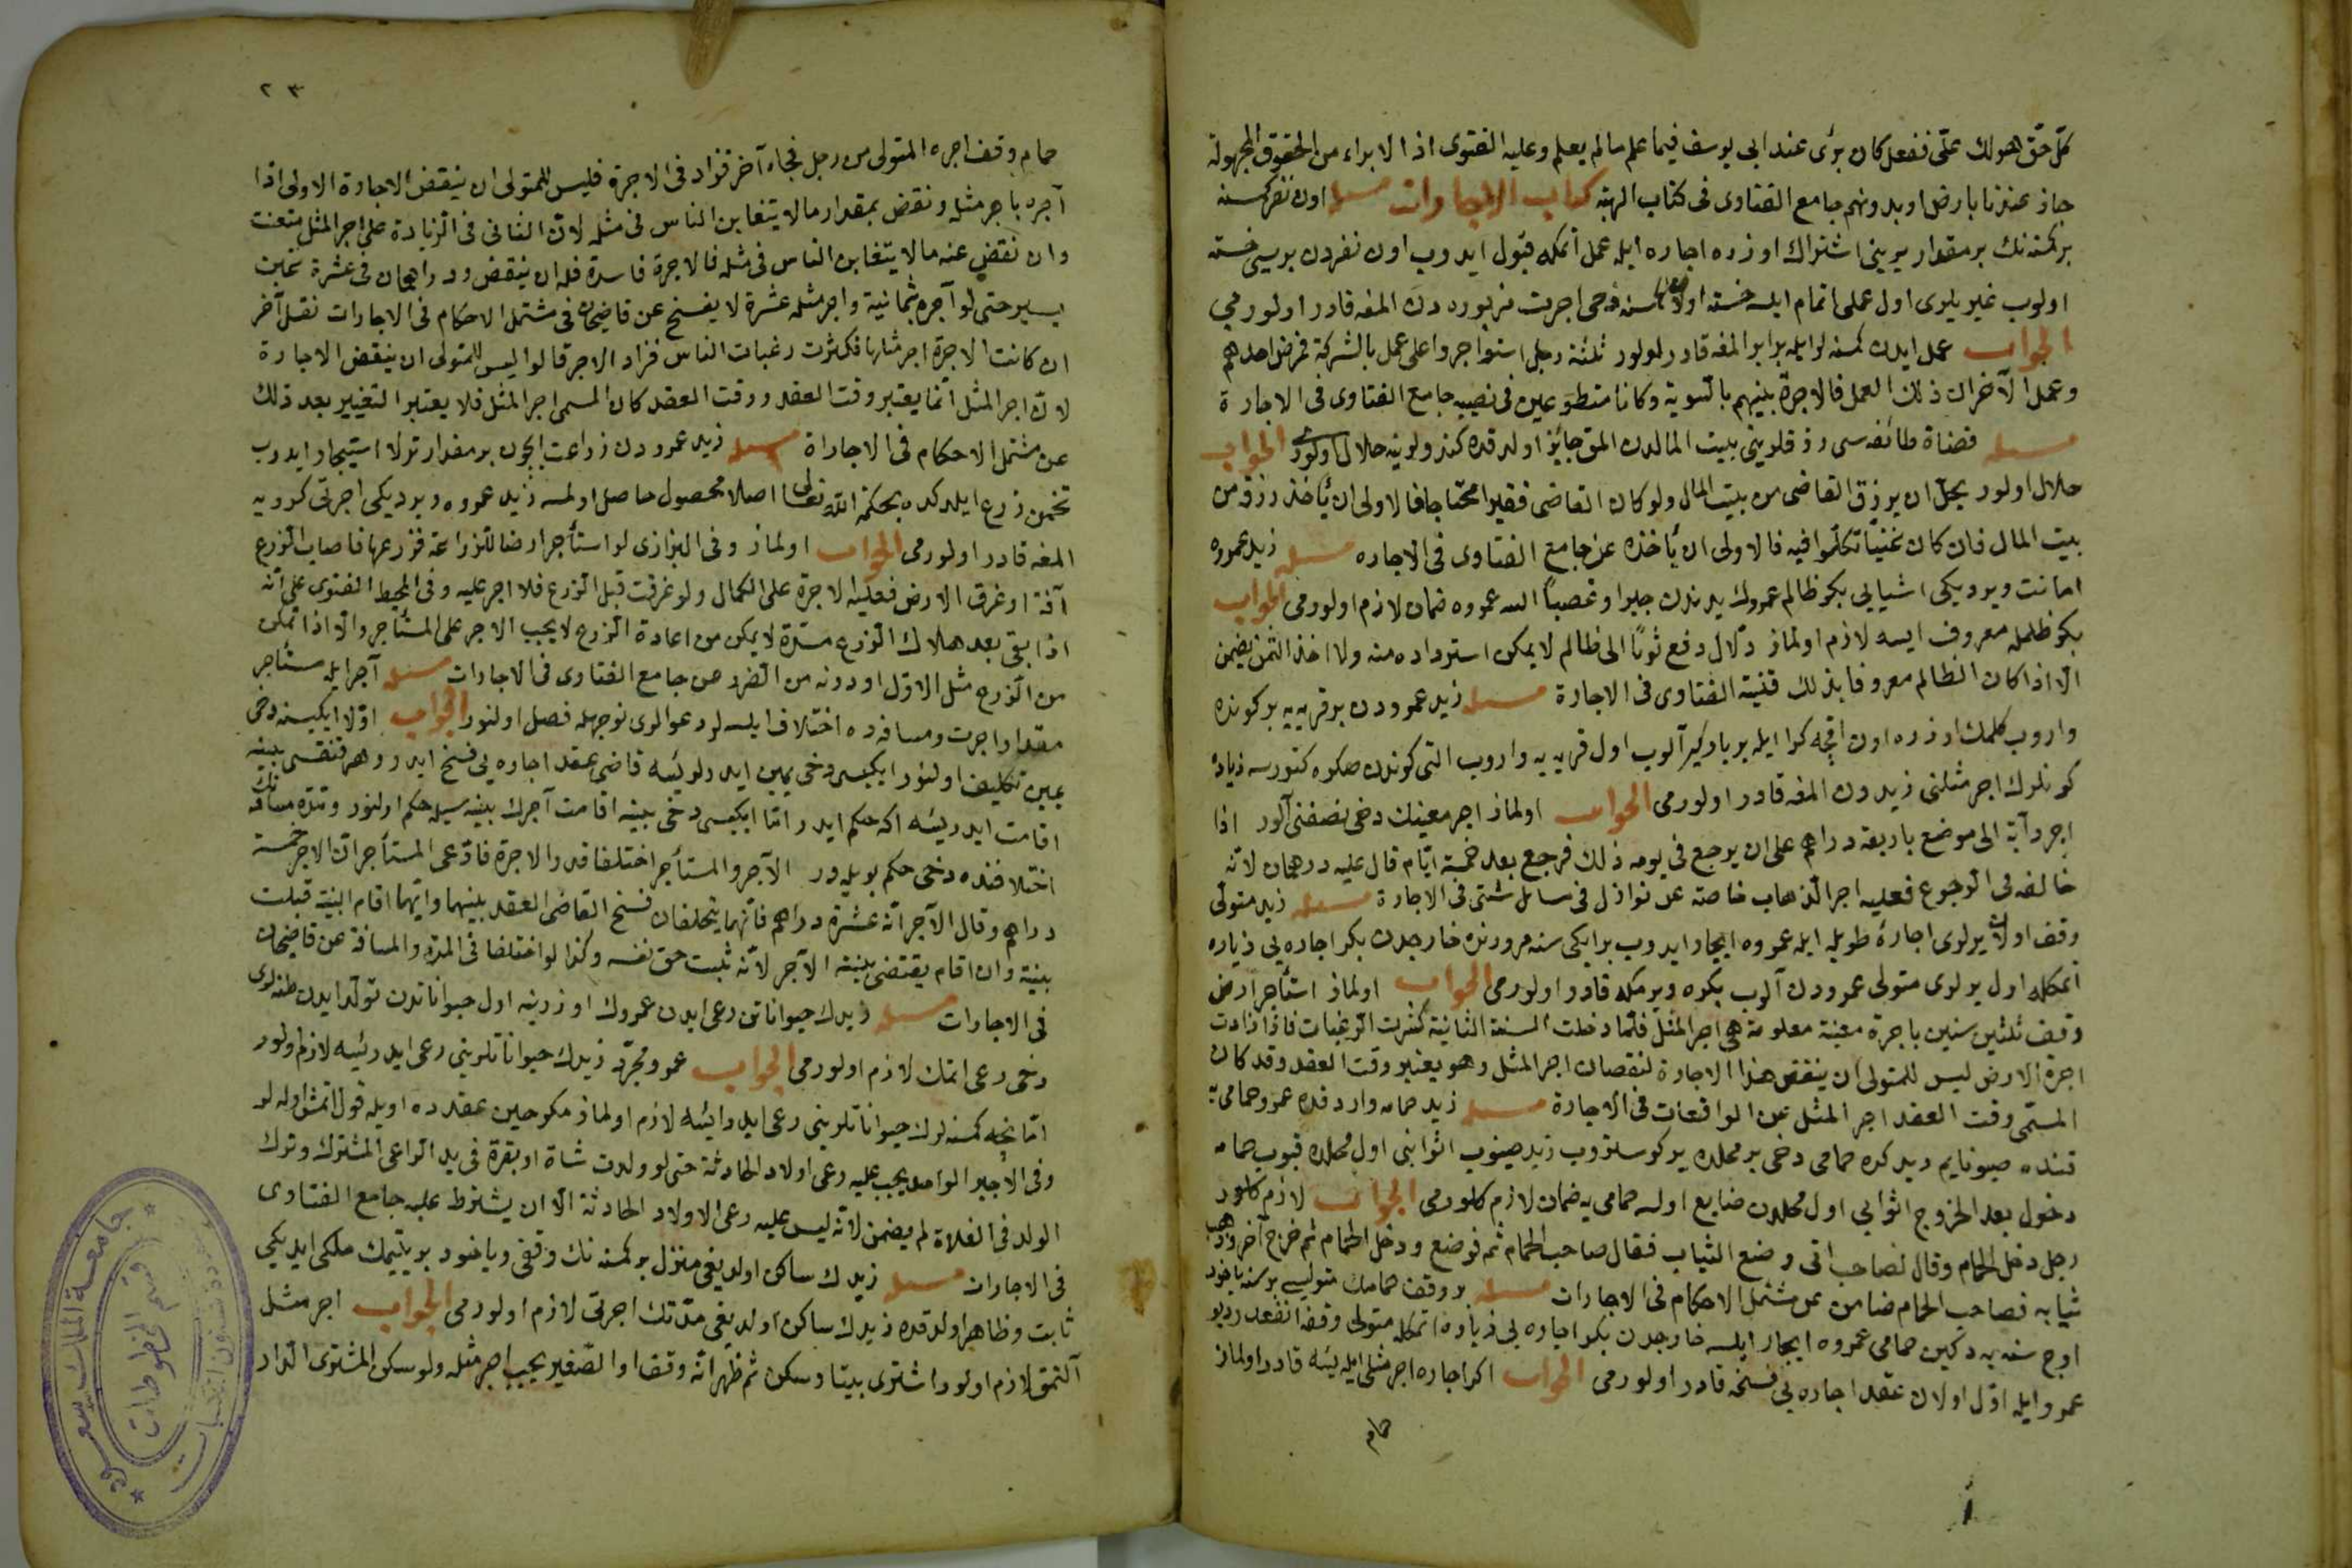 كل حق هو لك علي ففعل كان برئ عند ابي يوسف فيما علم مالم يعلم وعليه الفتوى اذ الابراء من الحقوق المجهولة
جاز عندنا بارض اوبدونهم جامع الفتاوى فى كتاب الهبة كتاب الاجارات مسئله اون نفر كمسنه
بر كمسنه نك بر مقدار يرينى اشتراك اوزره اجاره ايله عمل اتمكه قبول ايدوب اون نفردن بريسى خسته
اولوب غير يلرى اول عملى اتمام ايلسه خسته اولان كمسنه دخى اجرت مزبوره دن المغه قادر اولورمى
الجواب عمل ايدن كمسنه لر ايله برابر المغه قادر اولور ثلثة رجل استواجروا على عمل بالشركة فمرض احدهم
وعمل الآخران ذلك العمل فالاجرة بينهم بالسوية وكانا متطوعين فى نصيبه جامع الفتاوى فى الاجارة
مسئله قضاة طائفه سى رزقلرينى بيت المالدن المق جائز اولدقده كندولرينه حلال اولورمى الجواب
حلال اولور يحل ان يرزق القاضى من بيت المال ولو كان القاضى فقيرا محتاجا فالاولى ان يأخذ رزقه من
بيت المال فان كان غنيا تكلموا فيه فالاولى ان يأخذه عن جامع الفتاوى فى الاجاره مسئله زيد عمروه
امانت ويرديكى اشيايى بكر ظالم عمروك يدندن جبرا وغصبا السه عمروه ضمان لازم اولورمى الجواب
بكر ظلمله معروف ايسه لازم اولماز دلال دفع ثوبا الى ظالم لا يمكن استرداده منه ولا اخذ الثمن يضمن
الا اذا كان الظالم معروفا بذلك قنية الفتاوى فى الاجارة مسئله زيد عمرودن بر قريه يه بر كونده
واروب كلمك اوزره اون اقچه كرا ايله بر باركير آلوب اول قريه يه واروب التى كوندن صكره كتورسه زياده
كونلرك اجر مثلنى زيددن المغه قادر اولورمى الجواب اولماز اجر معينك دخى نصفنى آلور اذا
اجر دابة الى موضع باربعة دراهم على ان يرجع فى يومه ذلك فرجع بعد خمسة ايام قال عليه درهمان لانه
خالفه فى الرجوع فعليه اجر الذهاب خاصة عن نوازل فى مسائل شتى فى الاجارة مسئله زيد متولى
وقف اولان يرلرى اجارۀ طويله ايله عمروه ايجار ايدوب بر ايكى سنه مرورنده خارجدن بكر اجاره يى زياده
اتمكله اول يرلرى متولى عمرودن آلوب بكره ويرمكه قادر اولورمى الجواب اولماز استأجر ارض
وقف ثلثين سنين باجرة معينة معلومة هى اجر المثل فلما دخلت السنة الثانية كثرت الرغبات فازدادت
اجرة الارض ليس للمتولى ان ينقض هذا الاجارة لنقصان اجر المثل وهو يعتبر وقت العقد وقد كان
المسمى وقت العقد اجر المثل عن الواقعات فى الاجارة مسئله زيد حمامه واردقده عمرو حمامى يه
قنده صيونايم ديدكده حمامى دخى بر محلده ير كوستروب زيد صينوب اثوابنى اول محلده قيوب حمامه
دخول بعد الخروج اثوابى اول محلدن ضايع اولسه حمامى يه ضمان لازم كلورمى الجواب لازم كلور
رجل دخل الحمام وقال لصاحب اتى وضع الثياب فقال صاحب الحمام ثمه فوضع ودخل الحمام ثم خرج آخر وذهب
ثيابه فصاحب الحمام ضامن عن مشتمل الاحكام فى الاجارات مسئله بر وقف حمامك متوليسى بر سنه ياخود
اوچ سنه يه دكين حمامى عمروه ايجار ايلسه خارجدن بكر اجاره يى زياده اتمكله متولى وقفه انفعدر ديو
عمرو ايله اول اولان عقد اجاره يى فسخه قادر اولورمى الجواب اكر اجاره اجر مثلى ايله ايسه قادر اولماز
حمام
٢٣
حمام وقف اجره المتولى من رجل فجاء آخر فزاد فى الاجرة فليس للمتولى ان ينقض الاجارة الاولى اذا
آجره باجر مثله ونقض بمقدار مالا يتغابن الناس فى مثله لان الثانى فى الزيادة على اجر المثل متعنت
وان نقض عنه مالا يتغابن الناس فى مثله فالاجرة فاسدة فله ان ينقض ودراهمان فى عشرة غبن
يسير حتى لو آجره بثمانية واجر مثله عشرة لا يفسخ عن قاضيخان فى مشتمل الاحكام فى الاجارات نقل آخر
ان كانت الاجرة اجر مثلها فكثرت رغبات الناس فزاد الاجر قالوا ليس للمتولى ان ينقض الاجارة
لان اجر المثل انما يعتبر وقت العقد ووقت العقد كان المسمى اجر المثل فلا يعتبر التغيير بعد ذلك
عن مشتمل الاحكام فى الاجاراة مسئله زيد عمرودن زراعت ايچون بر مقدار ترلا استيجار ايدوب
تخمن زرع ايلدكده بحكمة الله تعالى اصلا محصول حاصل اولمسه زيد عمروه ويرديكى اجرتى كرو يه
المغه قادر اولورمى الجواب اولماز وفى البزازى لو استأجر ارضا للزراعة فزرعها فاصاب الزرع
آفة او غرق الارض فعليه الاجرة على الكمال ولو غرقت قبل الزرع فلا اجر عليه وفى المحيط الفتوى على انه
اذا بقى بعد هلاك الزرع مدة لا يمكن من اعادة الزرع لا يجب الاجر على المستأجر والا اذا تمكن
من الزرع مثل الاول او دونه من الضرر عن جامع الفتاوى فى الاجارات مسئله آجر ايله مستأجر
مقدار اجرت ومسافه ده اختلاف ايلسه لر دعوالرى نوجهله فصل اولنور الجواب اولا ايكيسنه دخى
يمين تكليف اولنور ايكيسى دخى يمين ايدرلر ايسه قاضى عقد اجاره يى فسخ ايدر وهر قنقسى بينه
اقامت ايدر ايسه اكه حكم ايدر اما ايكيسى دخى بينه اقامت آجرك بينه سيله حكم اولنور ومدة مسافه نك
اختلافنده دخى حكم بويله در الآجر والمستأجر اختلفا قدر الاجرة فادعى المستأجر ان الاجر خمسة
دراهم وقال الآجر انه عشرة دراهم فانهما يتحلفان فسخ القاضى العقد بينهما وايهما اقام البينة قبلت
بينة وان اقام يقتضى بينة الآجر لانه ثبت حق نفسه وكذا لو اختلفا فى المدة والمسافة عن قاضيخان
فى الاجارات مسئله زيدك حيواناتن رعى ايدن عمروك اوزرينه اول حيواناتدن تولد ايدن طفللرى
دخى رعى اتمك لازم اولورمى الجواب عمرو مجرد زيدك حيواناتلرينى رعى ايدر ايسه لازم اولور
اما نيچه كمسنه لرك حيواناتلرينى رعى ايدر ايسه لازم اولماز مكر حين عقدده اويله قول اتمش اوله لر
وفى الاجير الواحد يجب عليه رعى اولاد الحادثة حتى لو ولدت شاة او بقرة فى يد الراعى المشترك وترك
الولد فى الفلاة لم يضمن لانه ليس عليه رعى الاولاد الحادثة الا ان يشترط عليه جامع الفتاوى
فى الاجارات مسئله زيدك ساكن اولديغى منزل بر كمسنه نك وقفى وياخود بر يتيمك ملكى ايديكى
ثابت وظاهر اولدقده زيدك ساكن اولديغى مدتك اجرتى لازم اولورمى الجواب اجر مثل
آلنمق لازم اولور اشترى بيتا وسكن ثم ظهر انه وقف او الصغير يجب اجر مثله ولو سكن المشترى الدار
جامعة الملك سعود
قسم المخطوطات
عمادة شؤون المكتبات